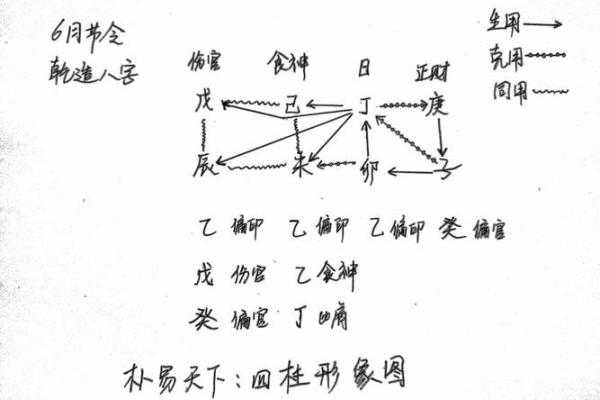 6月节令
乾造八字
生用
克用
同用
伤官 食神 日 正财
戊 己 丁 庚
辰 未 卯 子
乙偏印 乙偏印 乙偏印 癸偏官
戊伤官 乙食神
癸偏官 丁比肩
朴易天下:四柱形象图